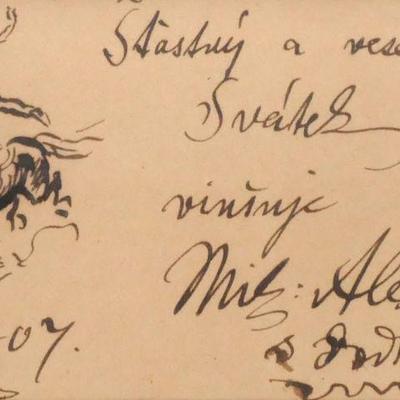 Šťastný a vese
Svátek
vinšuje
Mik: Ale
s
07.